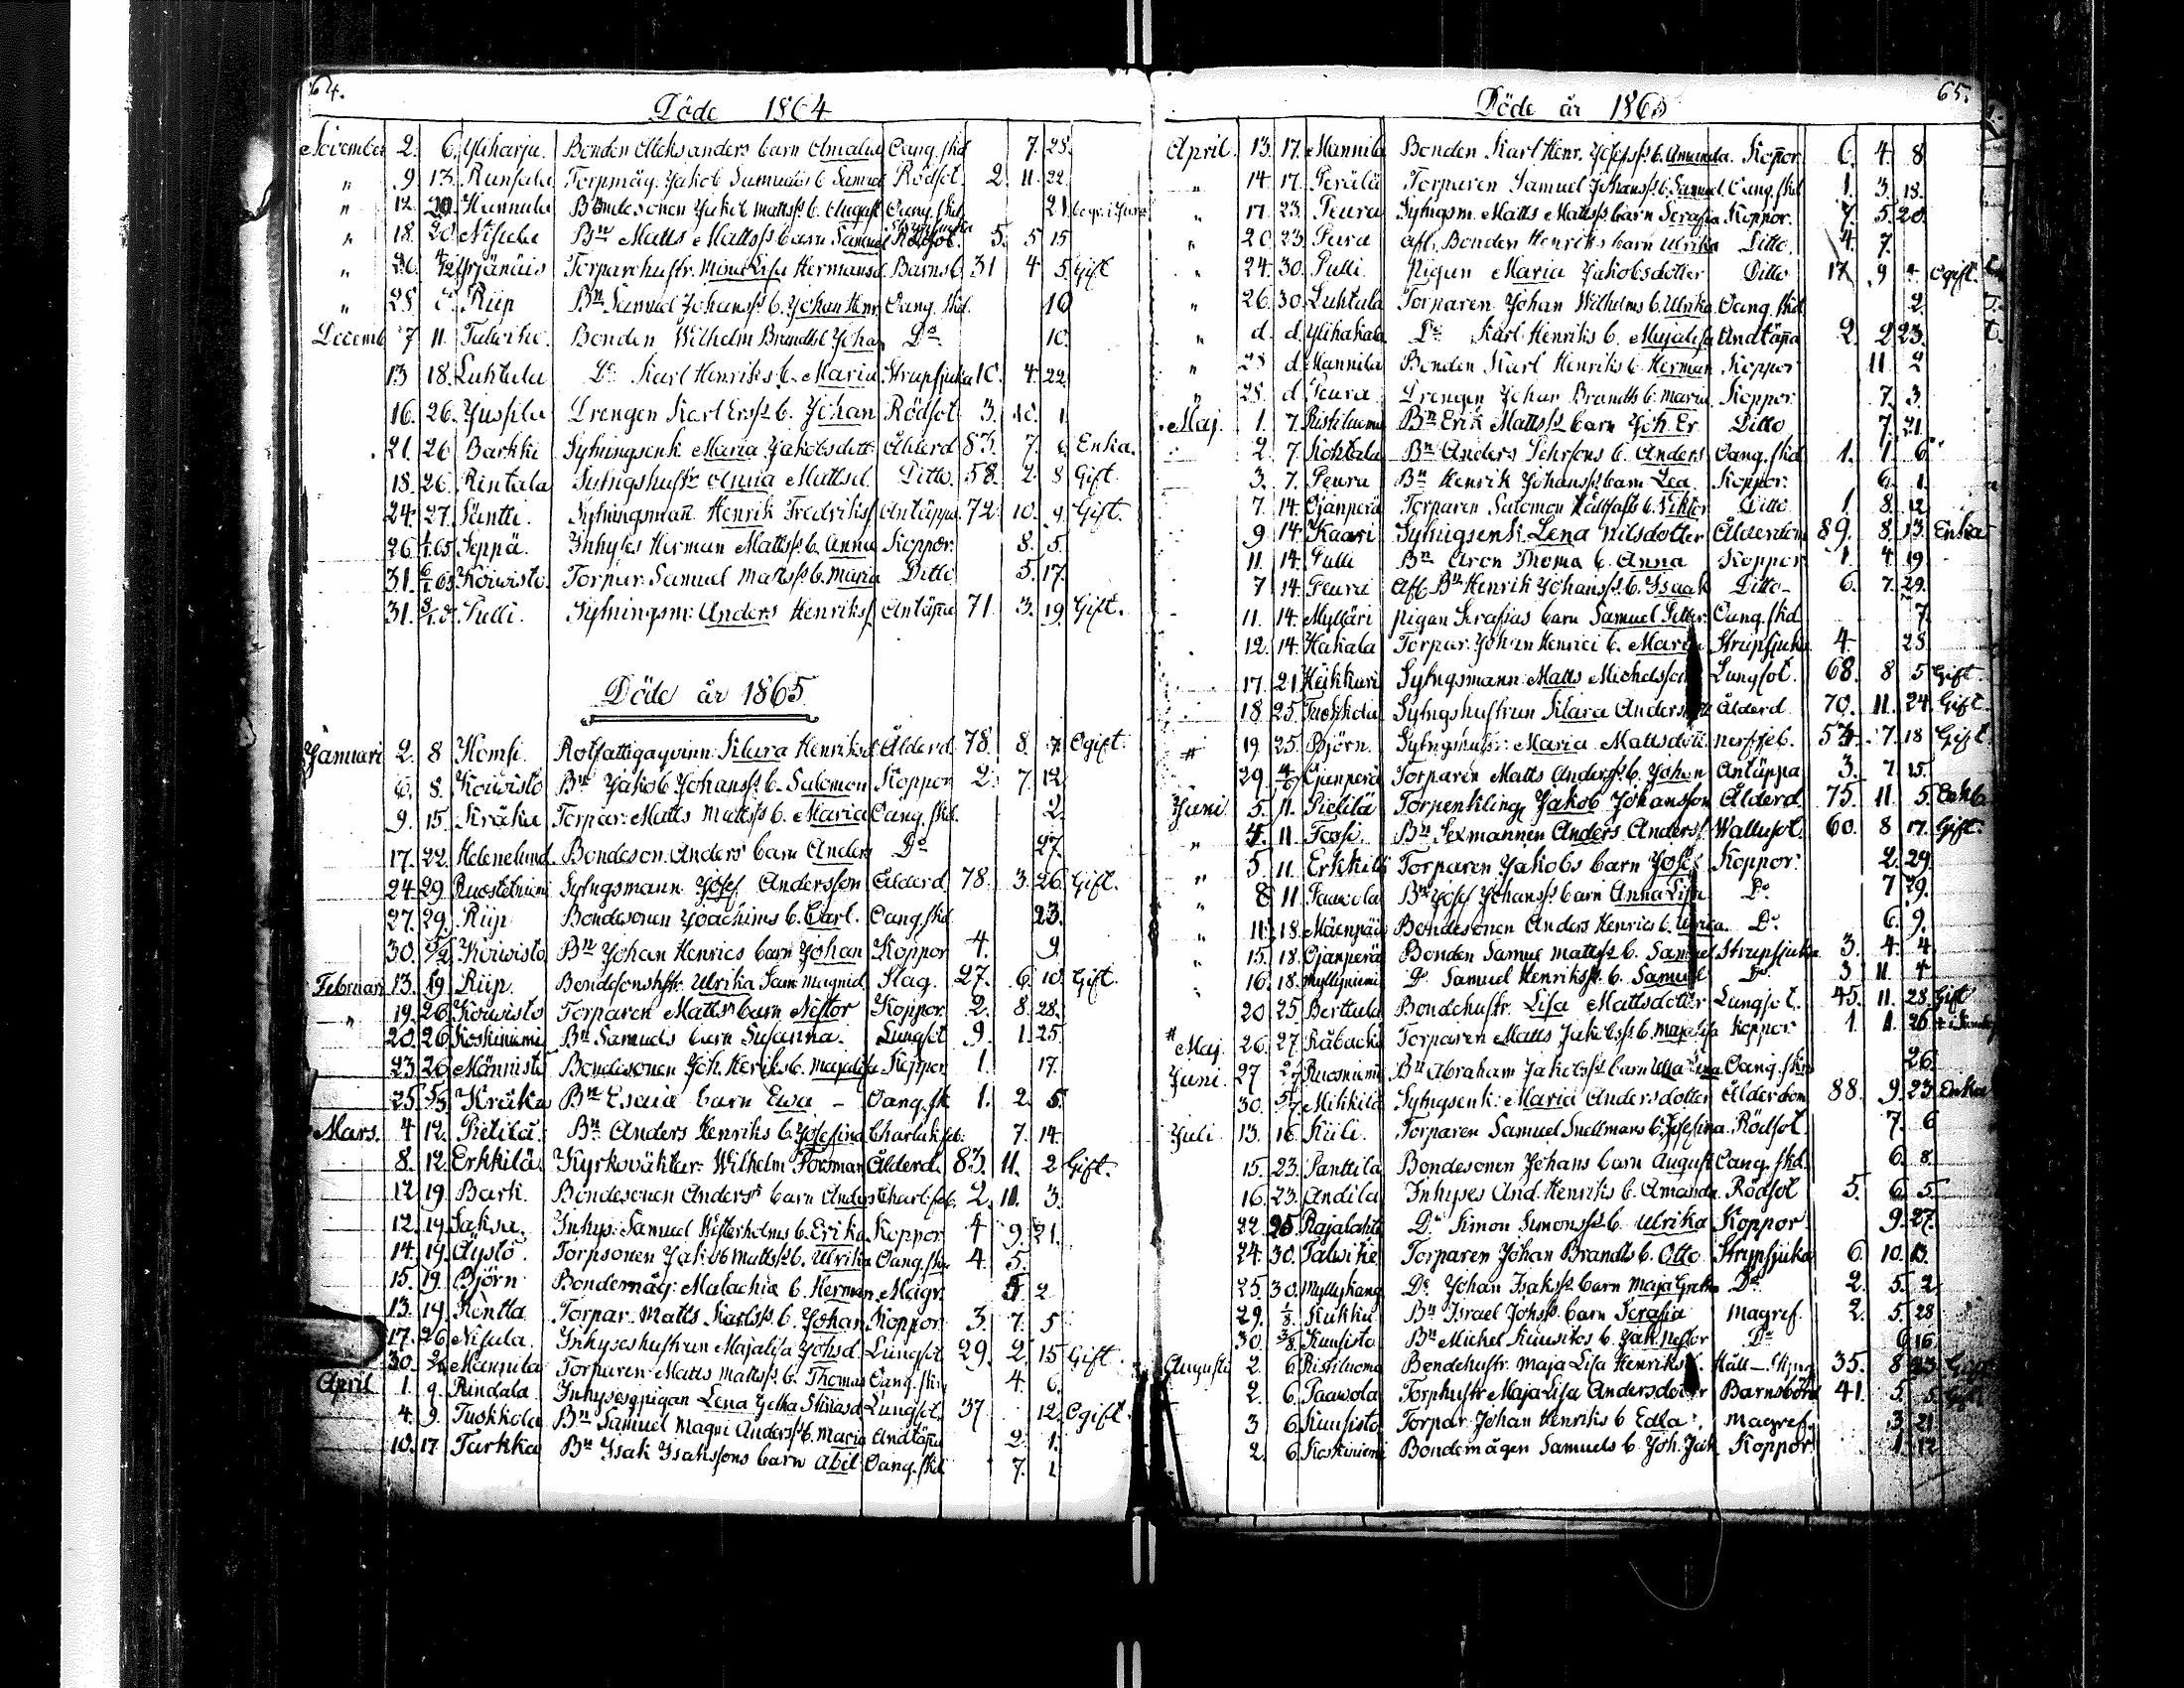 64.
Döde 1864
November 2. 6. Yliharju. Bonden Aleksanders barn Amalia Oang. skd 7. 28.
" 9 13. Ransala Torpmåg. Jakob Samuels b. Samuel Rödsot. 2. 11. 22.
" 12. 20. Hannula Bondesonen Jakob Mattss. b. August Oang. skd. 21.
" 18. 20. Nisula Bn Matts Mattss. barn Samuel Rödsot. 5. 5 15
" 26. Torparehustr. Mina Lisa Hermansd. Barnsb. 31 4 5 Gift
" 28 Riip Bn Samuel Johanss. b. Johan Henr. Oang. skd. 10
Decemb 7 11. Talwitie. Bonden Wilhelm Brandts b. Johan Do 10.
13 18. Luhtala Do Karl Henriks b. Maria Strupsjuka 10. 4. 22
16. 26. Jussila Drengen Karl Erss. b. Johan Rödsot 3. 10. 1.
21. 26 Barkki Sytningsenk. Maria Jakobsdott. Ålderd 83. 7. 6 Enka.
18. 26. Rintala Sytngshustr Anna Mattsd. Ditto. 58. 2. 8 Gift.
24. 27. Säntti. Sytningsman Henrik Fredrikss. Antäppa. 72. 10. 9. Gift.
26 Seppä. Inhyses Herman Mattss. b. Anna Koppor. 8. 5.
31. Koiwisto. Torpar. Samuel Mattss. b. Maria Ditto 5. 17.
31. Pulli. Sytningsm. Anders Henrikss. Antäppa 71. 3. 19. Gift.
Döde år 1865
Januari 2. 8 Homsi. Rotfattigqvinn: Klara Henriksd. Ålderd. 78. 8. 7. Ogift.
6. 8. Koiwisto Bn Jakob Johanss. b. Salomon Koppor 2. 7. 12
9. 15. Kråka Torpar: Matts Mattss. b. Maria Oang. skd. 2.
17. 22. Helenelund. Bondeson Anders barn Anders Do 27.
24. 29 Ruostetniemi Sytngsmann Josef Andersson Ålderd 78. 3. 26. Gift.
27. 29. Riip Bondesonen Joachims b. Carl. Oang. skd. 23.
30. 5/2 Koiwisto Bn Johan Henrics barn Johan Koppor 4. 9
Februari 13. 19 Riip. Bondesonshstr. Ulrika Sam: Magnid. Slag. 27. 6. 10. Gift.
" 19. 26. Koiwisto Torparen Matts barn Nestor Koppor 2. 8 28.
20. 26. Koskiniemi Bn Samuels barn Susanna. Lungsot 9. 1. 25.
23. 26. Männistö Bondesonen Joh. Henriks b. Majalisa Koppor 1. 17.
25. 5/3. Kråka Bn Esaia barn Ewa - Oang. sk. 1. 2. 5.
Mars. 4 12. Pietilä Bn Anders Henriks b. Josefina Charlak.feb. 7. 14.
8. 12 Erkkilä Kyrkoväktar. Wilhelm Forsman Ålderd. 83. 11. 2 Gift.
12 19. Bark. Bondesonen Anders barn Anders Charl.feb. 2. 11. 3.
12. 19. Saksa. Inhys: Samuel Westerholms b. Erika Koppor 4 9. 21.
14. 19 Äystö. Torpsonen Jakob Mattss. b. Ulrika Oang. skd. 4. 5.
15. 19. Björn Bondemåg. Malachia b. Herman Magr. 5. 2
13. 19 Röntta Torpar. Matts Karlss. b. Johan Koppor 3. 7. 5
17. 26 Nisula. Inhyseshustrun Majalisa Johsd. Lungsot. 29. 2. 15 Gift.
30. Mannila Torparen Matts Mattss. b. Thomas Oang. skd. 4. 6.
April 1. 9. Rindala Inhysespigan Lena Greta Lungsot. 37 12. Ogift.
4. 9. Tuokkola Bn Samuel Magni Anderss. b. Maria Andtäppa 2. 1.
10. 17 Turkka Bn Isak Isakssons barn Abel Oang. skd. 7. 1
65.
Döde år 1865
April. 13. 17. Mannila Bonden Karl Henr. Josefss. b. Amanda. Koppor. 6. 4. 8
" 14. 17. Perälä Torparen Samuel Johanss. b. Samuel. Oang. skd 1. 3. 18.
" 17. 23. Peura Sytngsm. Matts Mattss. barn Serafia Koppor. 7. 5. 20.
" 20. 23. Pura Afl. Bonden Henriks barn Ulrika Ditto. 4. 7.
" 24. 30. Pulli Pigan Maria Jakobsdotter Ditto 17. 9 4. Ogift.
" 26. 30. Luhtala Torparen Johan Wilhelms b. Ulrika Oang. skd. 2.
" d. d. Ylihakala Do Karl Henriks b. Majalisa Andtäppa 2. 2 23.
" 28 d. Mannila Bonden Karl Henriks b. Herman Koppor 11. 2
" 28. d Peura Drengen Johan Brandts b. Maria. Koppor. 7. 3.
Maj. 1. 7. Ristiluoma Bn Erik Mattss. barn Joh. Er. Ditto 7. 21.
2. 7. Kohtala Bn Anders Pehrsons b. Anders Oang. skd. 1. 1. 6
3. 7. Peura Bn Henrik Johanss. barn Lea Koppor. 6. 1.
7. 14. Ojanperä Torparen Salomon b. Viktor Ditto 1. 8. 12.
9 14. Kaari Sytnigsenk. Lena Nilsdotter Ålderdom 89. 8 13. Enka
11. 14. Pulli Bn Aron Thoma b. Anna Koppor 1. 4 19
7 14. Peura Afl. Bn Henrik Johanss. b. Isaak Ditto - 6. 7. 29.
11. 14. Mylläri Pigan Serafias barn Samuel Petter Oang. skd. 7.
12. 14. Hakala Torpar. Johan Henrici b. Maria Strupsjuka 4. 28
17. 21. Heikkuri Sytngsmann Matts Michelsson Lungsot. 68. 8 5 Gift.
18. 25. Tuokkola Sytngshustrun Klara Anders Ålderd. 70. 11. 24. Gift.
# 19. 25. Björn. Sytngshustr: Maria Mattsdott. nerf.feb. 54. 7. 18 Gift.
29. Ojanperä Torparen Matts Anderss. b. Johan Antäppa 3. 7 15.
Juni. 5. 11. Pietilä Torpenkling Jakob Johansson Ålderd. 75. 11. 5. Enkl.
" 4. 11 Bn Sexmannen Anders Anders. Wattusot. 60. 8 17. Gift.
" 5 11. Erkkilä Torparen Jakobs barn Josef Koppor. 2. 29.
" 8 11. Paawola Bn Josef Johanss. barn Anna Lisa Do 7 29.
" 11. 18. Mäenpää Bondesonen Anders Henrics b. Ulrica. Do 6. 9.
" 15. 18. Ojanperä Bonden Samuel Mattss. b. Samuel Strupsjuka 3. 4. 4
16. 18. Myllyniemi Do Samuel Henrikss. b. Samuel Do 3 11. 4
20 25 Berttula Bondehustr. Lisa Mattsdotter Lungsot. 45. 11. 28. Gift
# Maj. 26. 27. Råbacka Torparen Matts Jakobss. b. Majalisa Koppor. 1. 11. 26
Juni. 27 Ruosniemi Bn Abraham Jakobss. barn Oang. skd 26.
30. 5/7 Mikkilä Sytngsenk: Maria Andersdotter Ålderdom 88. 9. 23 Enka
Juli. 13. 16. Kiili. Torparen Samuel Snellmans b. Josefina. Rödsot. 7. 6
15. 23. Panttila Bondesonen Johans barn August Oang. skd. 6. 8.
16. 23. Andila Inhyses And. Henriks b. Amanda Rödsot 5. 6 5
22. 25. Rajalahti Do Simon Simonss. b. Ulrika Koppor 9. 27.
24. 30. Talwitie Torparen Johan Brandts b. Otto Strypsjuka 6. 10. 13.
25. 30. Myllykang. Do Johan Isakss. barn Maja Greta Do 2. 5. 2
29. 1/8. Kukku Bn Israel Johss. barn Serafia Magref. 2. 5. 28
30. Kuusisto Bn Michel Kuusistos b. Jak. Nestor Do 6. 16
Augusti 2. 6. Ristiluoma Bondehustr. Maja Lisa Henriksd. Håll-Styng 35. 8 Gift
2. 6. Paawola Torphustr Maja Lisa Andersdotter Barnsbörd 41. 5. 5. Gift
3 6. Kuusisto Torpar. Johan Henriks b. Edla. Magref. 3 21
2. 6. Koskiniemi Bondemågen Samuels b. Joh. Jak. Koppor. 1. 12